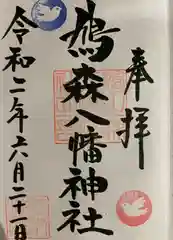 奉拝
鳩森八幡神社
令和二年六月二十一日